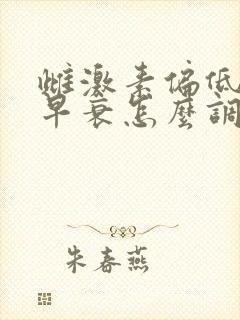 雌激素偏低
早衰怎麼調
朱春燕